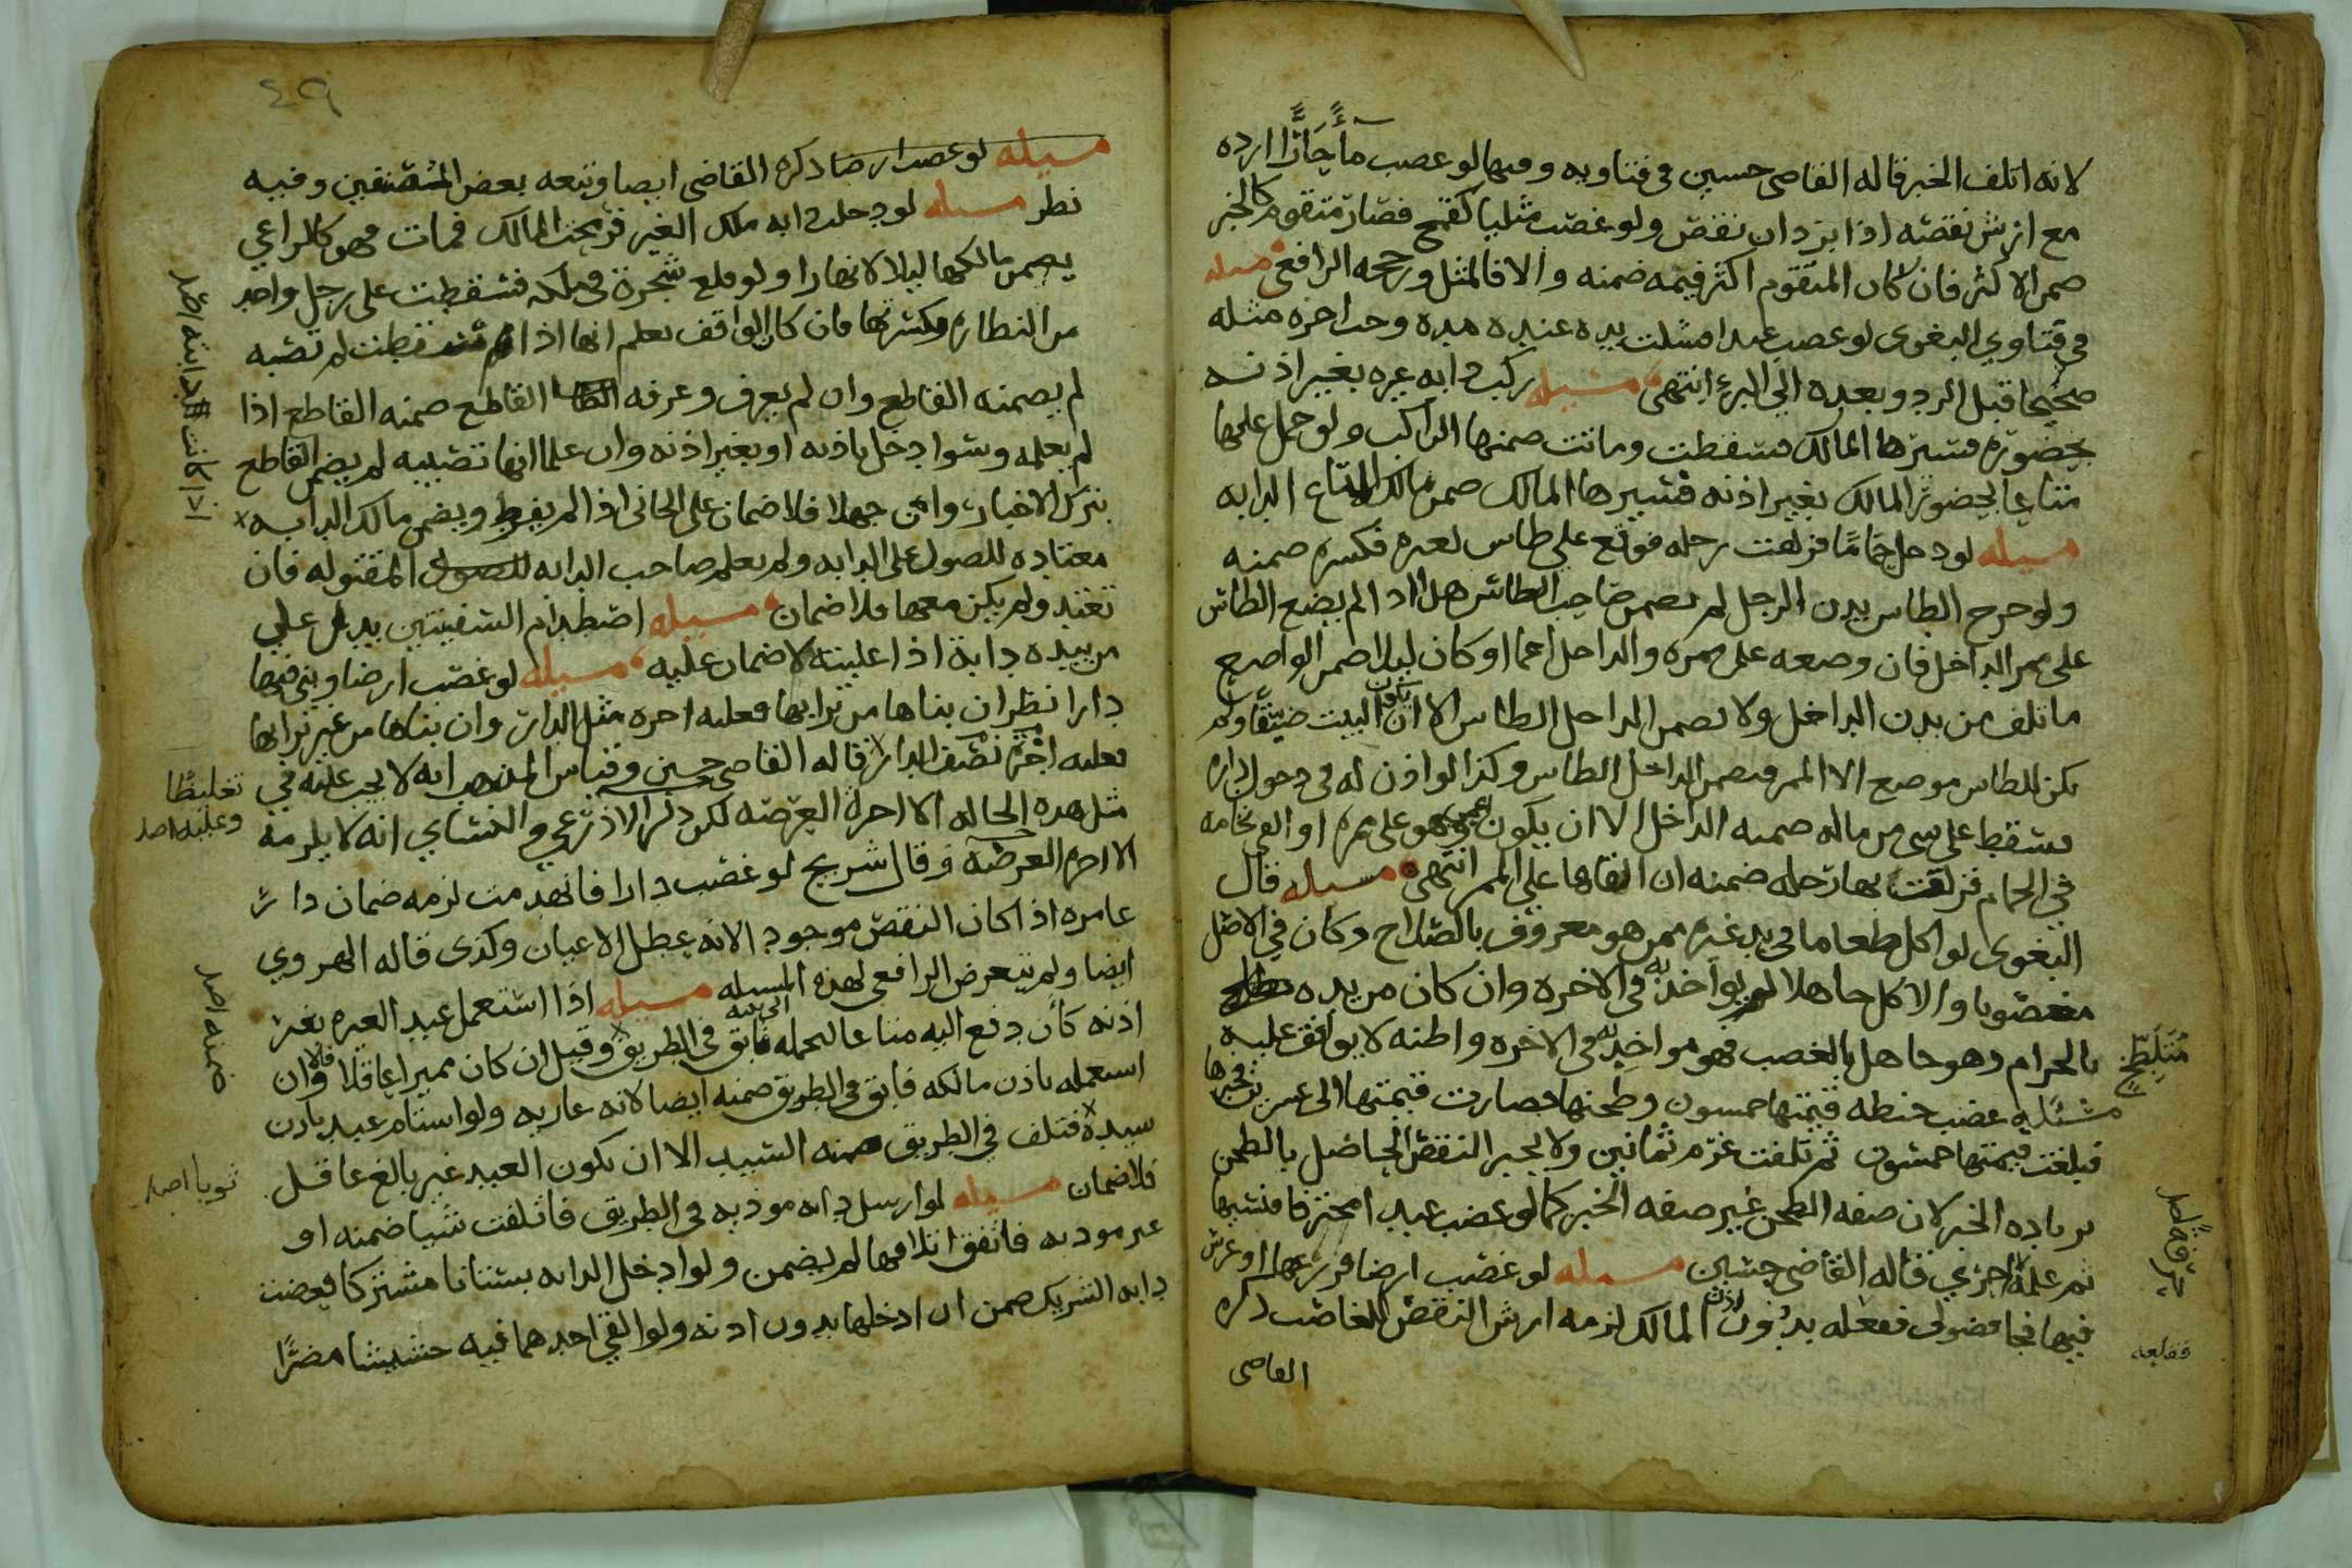 لانه اتلف الخبز قاله القاضي حسين في فتاويه وفيها لو غصب مآءً حَارًّا ارده
مع ارش نقصه اذا برد ان نقص ولو غصب مثليا كقمح فصار متقوم كالخبز
ضمن الاكثر فان كان المتقوم اكثر قيمه ضمنه والا فالمثل ورجحه الرافعي مسله
في فتاوي البغوي لو غصب عبدا فشلت يده عنده مده وجب اجره مثله
صحيحا قبل الرد وبعده الى البرء انتهى مسيله ركب دابه غيره بغير اذنه
بحضوره فسيرها المالك فسقطت وماتت ضمنها الراكب ولو حمل عليها
متاعا بحضور المالك بغير اذنه فسيرها المالك ضمن مالك المتاع الدابه
مسيله لو دخل حمامًا فزلقت رجله فوقع على طاس لغيره فكسره ضمنه
ولو جرح الطاس بدن الرجل لم يضمن صاحب الطاس هذا اذا لم يضع الطاس
على ممر الداخل فان وضعه على ممره والداخل اعمى او كان ليلا ضمن الواضع
ما تلف من بدن الداخل ولا يضمن الداخل الطاس الا ان يكون البيت ضيقًا ولم
يكن للطاس موضع الا الممر فيضمن الداخل الطاس وكذا لو اذن له في دخول داره
فسقط على شي من ماله ضمنه الداخل الا ان يكون اعمى وهو على ممره او القى نخامه
في الحمام فزلقت بها رجله ضمنه ان القاها على الممر انتهى مسيله قال
البغوي لو اكل طعاما في يد غيره ممن هو معروف بالصلاح وكان في الاصل
مغصوبا والاكل جاهلا لم يواخذ به في الاخره وان كان من يده
بالحرام وهو جاهل بالغصب فهو مواخذ به في الاخره واظنه لا يوافق عليه
مُتَلَطِّخ
مسئليه غصب حنطه قيمتها خمسون وطحنها فصارت قيمتها الى عشرين فخبزها
فبلغت قيمتها خمسون ثم تلفت غرم ثمانين ولا يجبر النقص الحاصل بالطحن
بزياده الخبز لان صفه الطحن غير صفه الخبز كما لو غصب عبدا محترفا فنسيها
حرفة اصل
ثم علمه اخرى قاله القاضي حسين مسله لو غصب ارضا فزرعها او غرس
فيها فجا فضولى ففعله بدون اذن المالك لزمه ارش النقص للغاصب ذكره
فقلعه
القاضى
٤٩
مسيله لو غصب ارضا ذكره القاضي ايضا وتبعه بعض المصنفين وفيه
نظر مسله لو دخلت دابه ملك الغير فرمحت المالك فمات فهو كالراعي
يضمن مالكها ليلا لا نهارا ولو قلع شجرة في ملكه فسقطت على رجل واحد
من النظاره فكسرتها فان كان الواقف يعلم انها اذا سقطت لم تصبه
لم يضمنه القاطع وان لم يعرف وعرفه القاطع ضمنه القاطع اذا
لم يعلمه وسوا دخل باذنه او بغير اذنه وان علما انها تصيبه لم يضمن القاطع
بترك الاخبار وان جهلا فلا ضمان على الجاني اذا لم يفرط ويضمن مالك الدابه
اذا كانت دابته اصل
معتاده للصول على الدابه ولم يعلم صاحب الدابه للصول المقتوله فان
تعتد ولم يكن معها فلا ضمان مسيله اصطدام السفينتين يدل على
من بيده دابة اذا غلبته لا ضمان عليه مسيله لو غصب ارضا وبنى فيها
دارا نظر ان بناها من ترابها فعليه اجره مثل الدار وان بناها من غير ترابها
فعليه اجرة نصف الدار قاله القاضي حسين وقياس المذهب انه لا يجب عليه في
تغليظًا وعليه اصل
مثل هذه الحاله الا اجرة العرصه لكن ذكر الاذرعي والنشاي انه لا يلزمه
الا اجره العرصة وقال شريح لو غصب دارا فانهدمت لزمه ضمان دار
عامره اذا كان النقض موجود لانه عطل الاعيان وكذى قاله الهروي
ايضا ولم يتعرض الرافعي لهذه المسيله مسيله اذا استعمل عبد الغير بغير
اذنه كأن دفع اليه متاعا ليحمله الى بيته فابق في الطريق وقيل ان كان مميزا عاقلا فلا وان
ضمنه اصل
استعمله باذن مالكه فابق في الطريق ضمنه ايضا لانه عاريه ولو استام عبد باذن
سيده فتلف في الطريق ضمنه السيد الا ان يكون العبد غير بالغ عاقل
ثوبا اصل
فلا ضمان مسيله لو ارسل دابه موذيه في الطريق فاتلفت شيا ضمنه او
غير موذيه فاتفق اتلافها لم يضمن ولو ادخل الدابه بستانا مشتركا فعضت
دابه الشريك ضمن ان ادخلها بدون اذنه ولو القى احدهما فيه حشيشا مضرًا